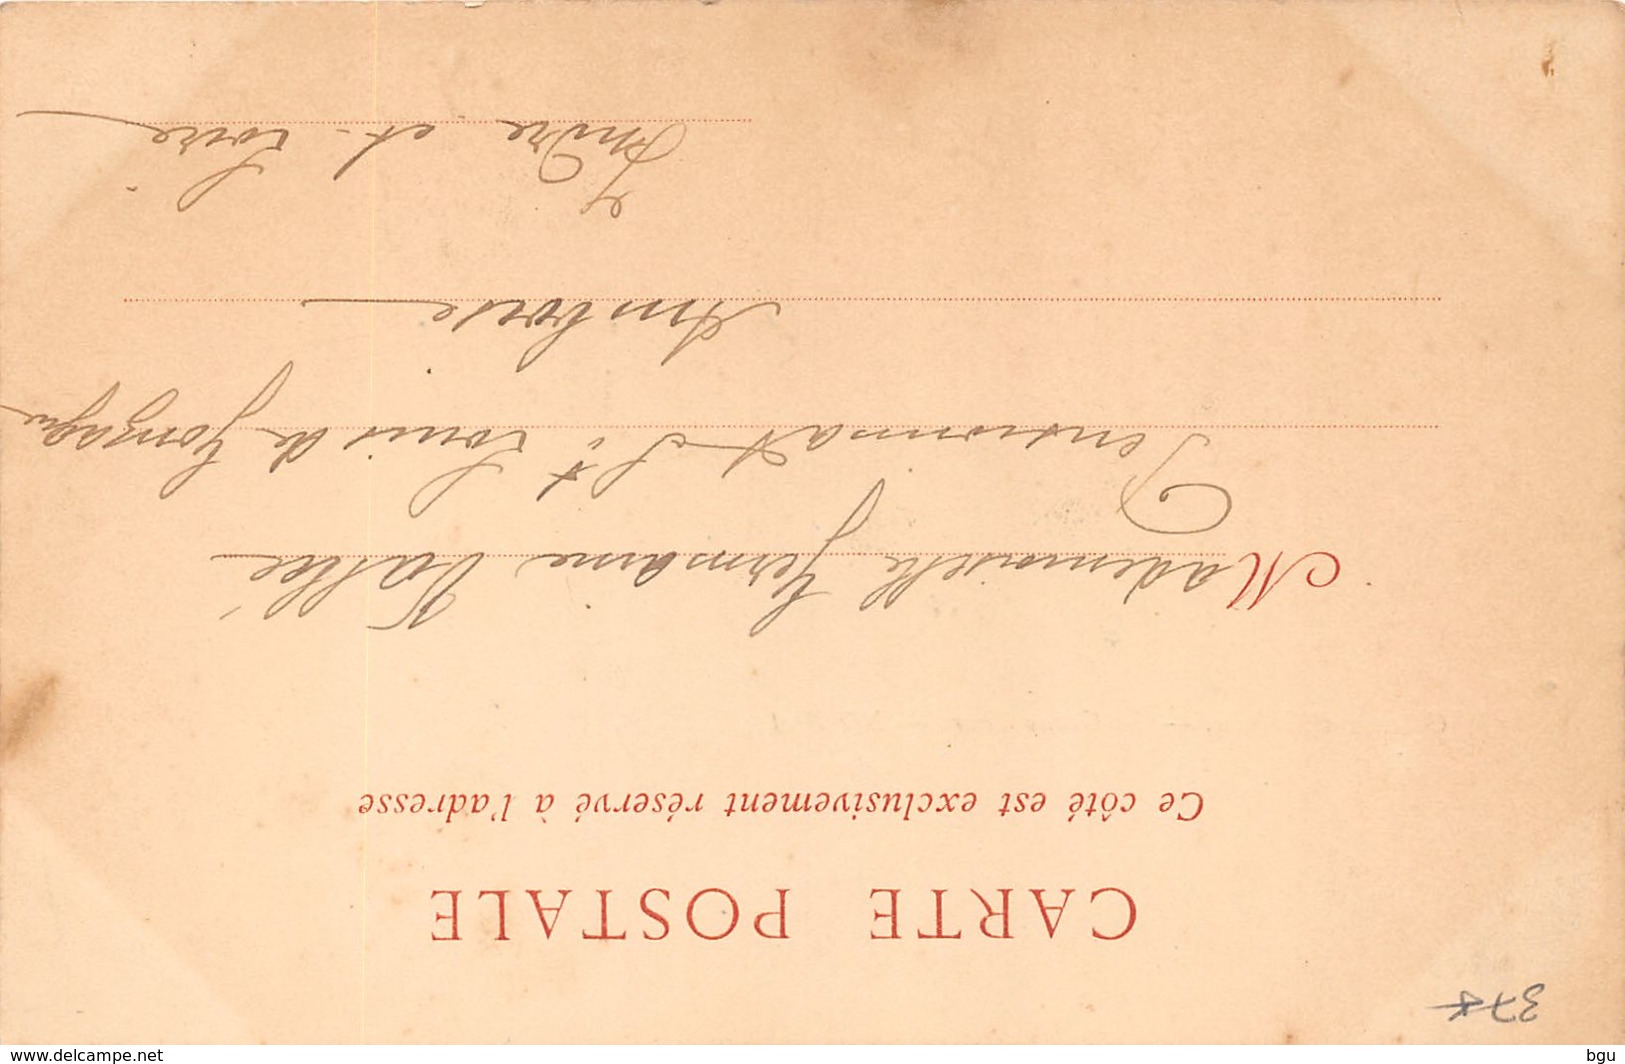 CARTE POSTALE
Ce côté est exclusivement réservé à l'adresse
Mademoiselle Germaine Vallée
Pensionnat St Louis de Gonzague
Amboise
Indre et Loire
37
www.delcampe.net
bgu